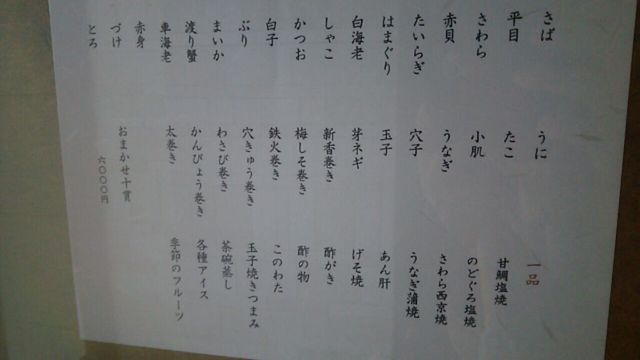 さば
平目
さわら
赤貝
たいらぎ
はまぐり
白海老
しゃこ
かつお
白子
ぶり
まいか
渡り蟹
車海老
赤身
づけ
とろ
うに
たこ
小肌
うなぎ
穴子
玉子
芽ネギ
新香巻き
梅しそ巻き
鉄火巻き
穴きゅう巻き
わさび巻き
かんぴょう巻き
太巻き
おまかせ十貫
六〇〇〇円
一品
甘鯛塩焼
のどぐろ塩焼
さわら西京焼
うなぎ蒲焼
あん肝
げそ焼
酢がき
酢の物
このわた
玉子焼きつまみ
茶碗蒸し
各種アイス
季節のフルーツ